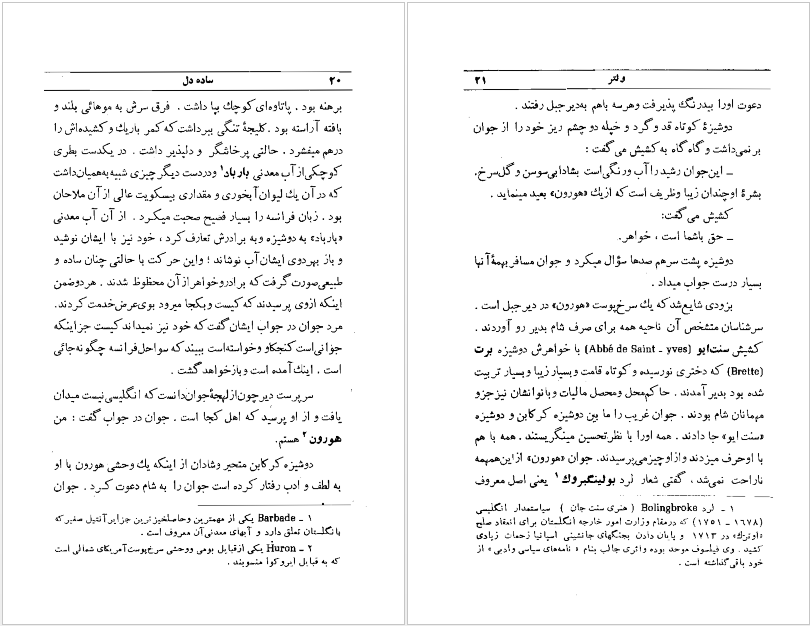 ۲۰ ساده دل
برهنه بود . پاتاوه‌ای کوچك بپا داشت . فرق سرش به موهائی بلند و
بافته آراسته بود . کلیجهٔ تنگی ببرداشت که کمر باریك و کشیده‌اش را
درهم میفشرد . حالتی پرخاشگر و دلپذیر داشت . در یکدست بطری
کوچکی از آب معدنی بارباد۱ ودردست دیگر چیزی شبیه به‌همیان‌داشت
که در آن یك لیوان آبخوری و مقداری بیسکویت عالی از آن ملاحان
بود . زبان فرانسه را بسیار فصیح صحبت میکرد . از آن آب معدنی
«بارباد» به دوشیزه وبه برادرش تعارف کرد ، خود نیز با ایشان نوشید
و باز بهردوی ایشان آب نوشاند ؛ واین حرکت با حالتی چنان ساده و
طبیعی‌صورت گرفت که برادروخواهرازآن محظوظ شدند . هردوضمن
اینکه ازوی پرسیدند که کیست وبکجا میرود بوی‌عرض‌خدمت کردند.
مرد جوان در جواب ایشان گفت که خود نیز نمیداند کیست جز اینکه
جوانی‌است کنجکاو وخواسته‌است ببیند که سواحل فرانسه چگونه جائی
است ، اینك آمده است وبازخواهد گشت .
سرپرست دیر چون از لهجهٔ جوان دانست که انگلیسی نیست میدان
یافت و از او پرسید که اهل کجا است . جوان در جواب گفت : من
هورون۲ هستم.
دوشیزه کرکابن متحیر وشادان از اینکه یك وحشی هورون با او
به لطف و ادب رفتار کرده است جوان را به شام دعوت کرد . جوان
۱ ـ Barbade یکی از مهمترین وحاصلخیز ترین جزایر آنتیل صغیر که
بانگلستان تعلق دارد و آبهای معدنی آن معروف است .
۲ ـ Huron یکی ازقبایل بومی ووحشی سرخ‌پوست آمریکای شمالی است
که به قبایل ایروکوا منسوبند .
ولتر ۲۱
دعوت اورا بیدرنگ پذیرفت وهرسه باهم به‌دیرجبل رفتند .
دوشیزهٔ کوتاه قد و گرد و خپله دو چشم ریز خود را از جوان
بر نمی‌داشت و گاه گاه به کشیش می گفت :
ـ این‌جوان رشید را آب ورنگی‌است بشادابی‌سوسن و گل‌سرخ.
بشرهٔ اوچندان زیبا وظریف است که ازیك «هورون» بعید مینماید .
کشیش می گفت:
ـ حق باشما است ، خواهر.
دوشیزه پشت سرهم صدها سؤال میکرد و جوان مسافر بهمهٔ آنها
بسیار درست جواب میداد .
بزودی شایع‌شد که یك سرخ‌پوست «هورون» در دیر جبل است .
سرشناسان متشخص آن ناحیه همه برای صرف شام بدیر رو آوردند .
کشیش سنت‌ایو (Abbé de Saint ـ yves) با خواهرش دوشیزه برت
(Brette) که دختری نورسیده و کوتاه قامت وبسیارزیبا وبسیار تربیت
شده بود بدیر آمدند . حاکم‌محل ومحصل مالیات وبانوانشان نیزجزو
مهمانان شام بودند . جوان غریب را ما بین دوشیزه کرکابن و دوشیزه
«سنت ایو» جا دادند . همه اورا با نظر تحسین مینگریستند . همه با هم
با اوحرف میزدند وازاوچیزمی‌پرسیدند. جوان «هورون» ازاین‌همهمه
ناراحت نمی‌شد ، گفتی شعار لرد بولینگبروك۱ یعنی اصل معروف
۱ ـ لرد Bolingbroke ( هنری سنت جان ) سیاستمدار انگلیسی
(۱۶۷۸ ـ ۱۷۵۱) که درمقام وزارت امور خارجه انگلستان برای انعقاد صلح
«اوترك» در ۱۷۱۳ و پایان دادن بجنگهای جانشینی اسپانیا زحمات زیادی
کشید . وی فیلسوف موحد بوده واثری جالب بنام « نامه‌های سیاسی وادبی » از
خود باقی‌گذاشته است .